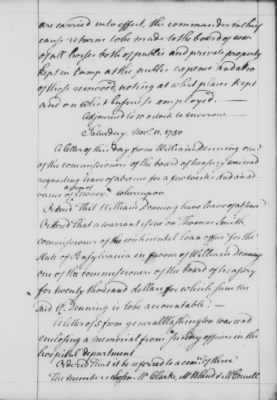 are carried into effect, the commander in chief
cause returns to be made to the board of war
of all horses both of public and private property
kept in camp at the public expence and also
of those removed, noting at what places kept
and on what business employed.—
Adjourned to 10 o'clock to morrow.—
Saturday Nov. 11. 1780
A letter of this day from William Denning one
of the commissioners of the board of treasury was read
requesting leave of absence for a few weeks and an ad
vance of money whereupon
Ordered That William Denning have leave of absence
Ordered That a warrant issue on Thomas Smith
commissioner of the continental loan office for the
state of Pensylvania in favour of William Denning
one of the commissioners of the board of treasury
for twenty thousand dollars for which sum the
said W. Denning is to be accountable.—
A letter of 5 from general Washington was read
enclosing a memorial from sundry officers in the
hospital department
Ordered That it be referred to a comee. of three
The members chosen Mr Clarke, Mr Bland &